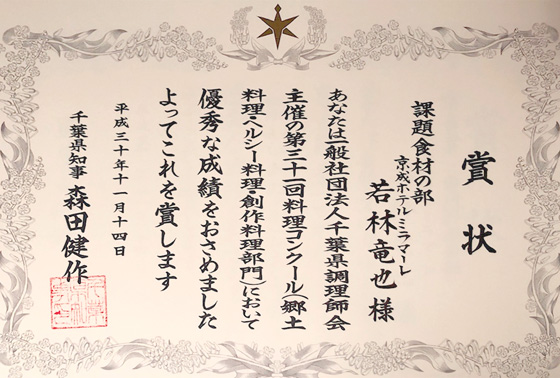 賞状
課題食材の部
京成ホテルミラマーレ
若林竜也様
あなたは一般社団法人千葉県調理師会
主催の第三十一回料理コンクール(郷土
料理・ヘルシー料理・創作料理部門)において
優秀な成績をおさめました
よってこれを賞します
平成三十年十一月十四日
千葉県知事 森田健作